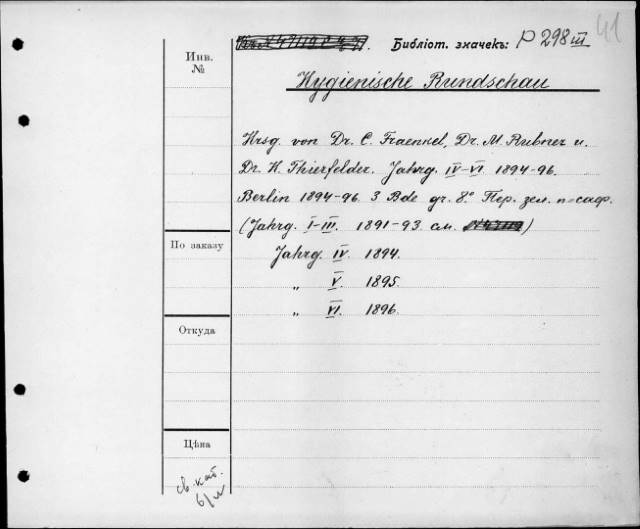 41
Библіот. значекъ: P 298 III
Инв.
№
Hygienische Rundschau
Hrsg. von Dr. C. Fraenkel, Dr. M. Rubner u.
Dr. H. Thierfelder. Jahrg. IV–VI 1894-96.
Berlin 1894-96. 3 Bde gr. 8.º Пер. зел. п-саф.
(Jahrg. I–III. 1891-93. см. )
По заказу
Jahrg. IV. 1894.
„ V. 1895.
„ VI. 1896.
Откуда
Цѣна
св. кат.
б/и